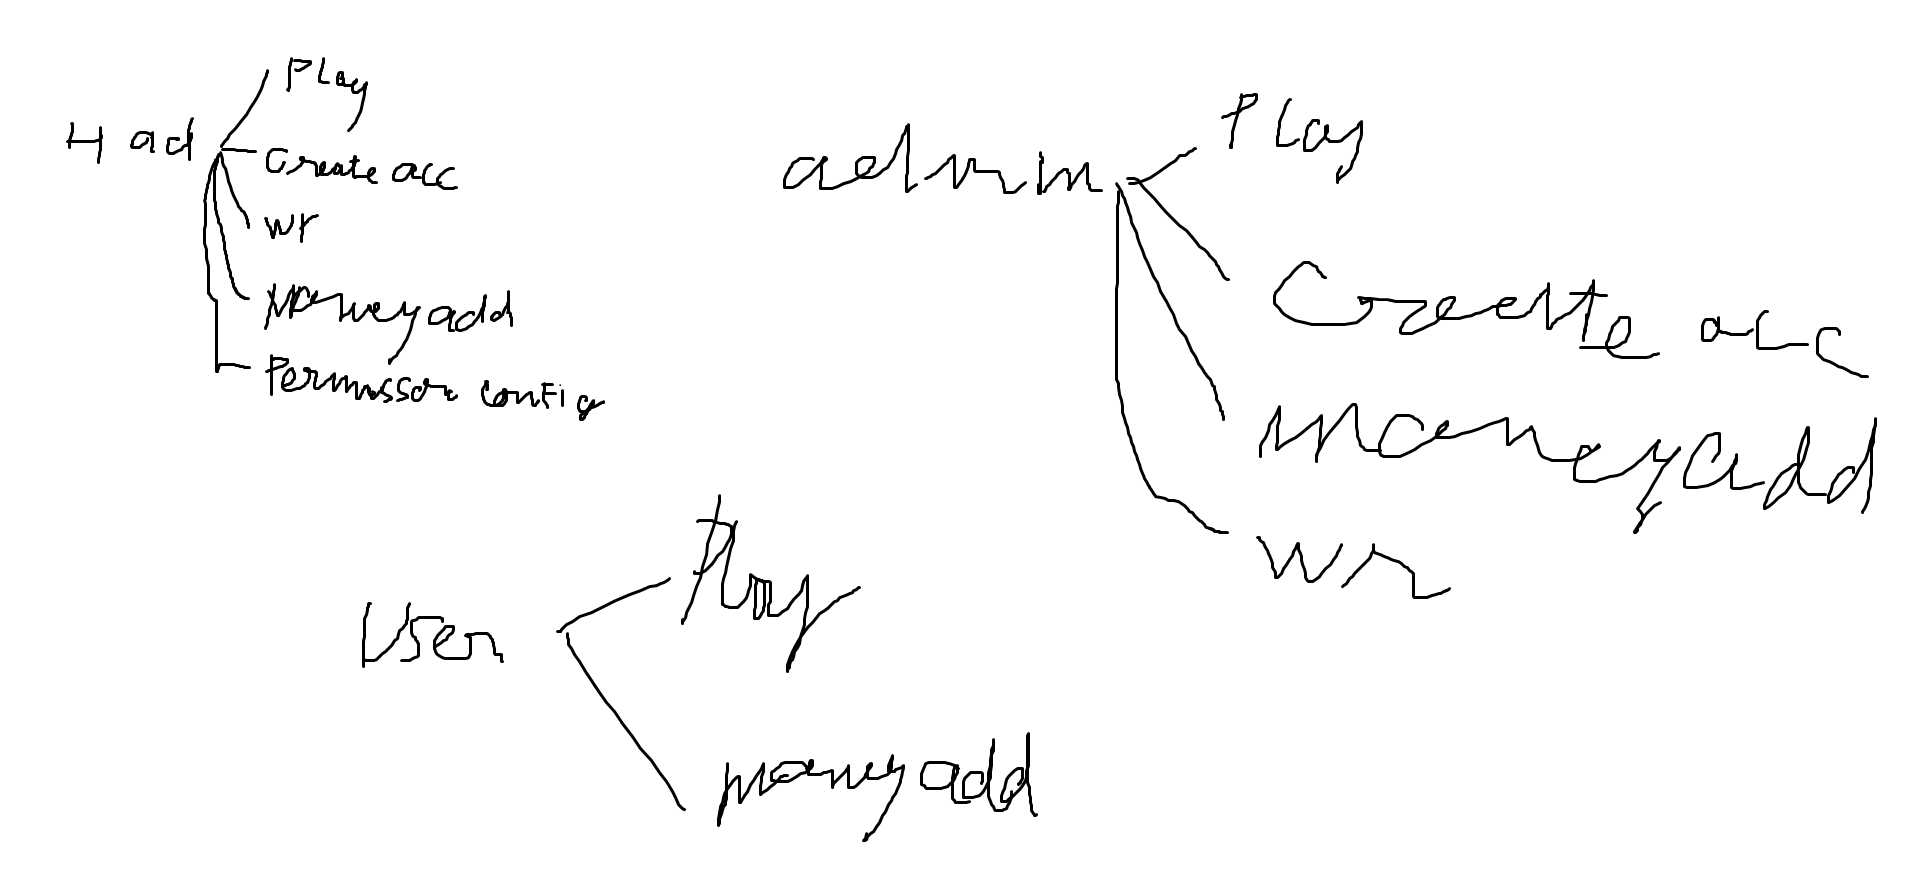 H ad
Play
Create acc
wr
Money add
Permission config
admin
Play
Create acc
money add
wr
User
Play
money add